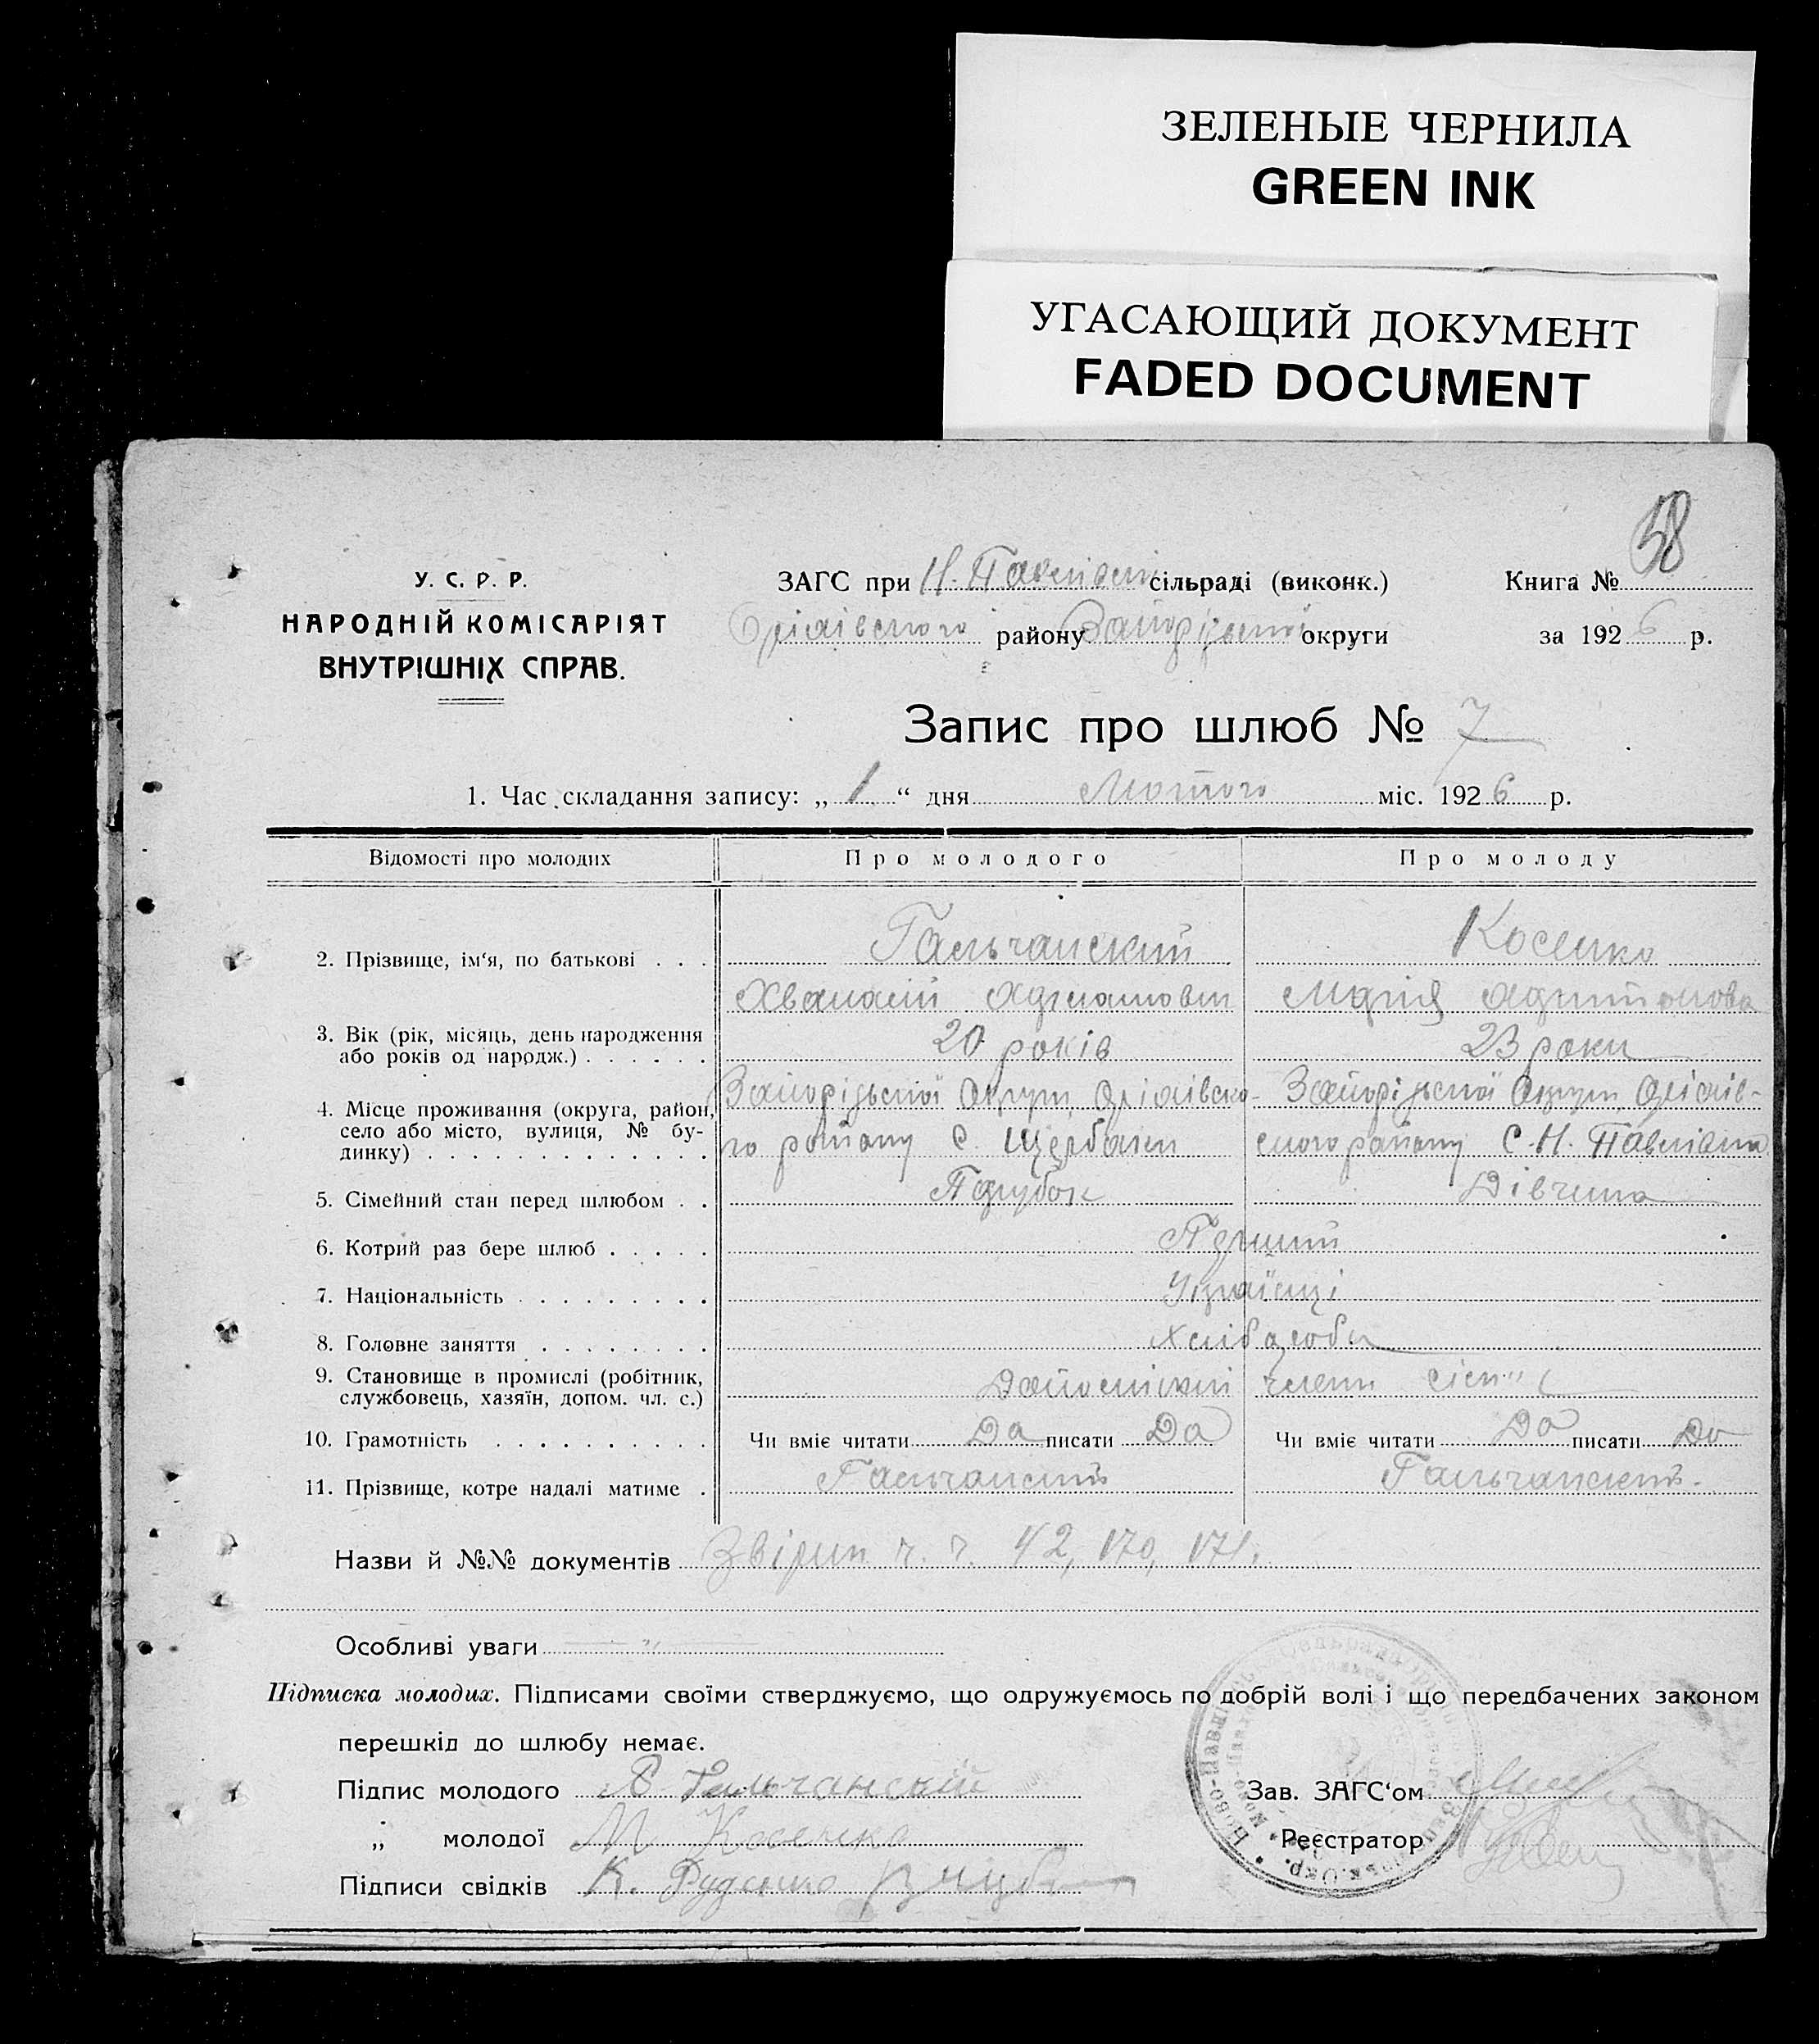 ЗЕЛЕНЫЕ ЧЕРНИЛА
GREEN INK
УГАСАЮЩИЙ ДОКУМЕНТ
FADED DOCUMENT
58
У. С. Р. Р.
НАРОДНІЙ КОМІСАРІЯТ
ВНУТРІШНІХ СПРАВ.
ЗАГС при Н. Павлівській сільраді (виконк.)
Книга №
Оріхівского району Запорізької округи
за 1926 р.
Запис про шлюб № 7
1. Час складання запису: „ 1 “ дня Лютого міс. 1926 р.
Відомості про молодих Про молодого Про молоду
2. Прізвище, ім‘я, по батькові . . . Гальчанский Косенко
Хванасій Марія
3. Вік (рік, місяць, день народження
або років од народж.) . . . . . . 20 років 23 роки
4. Місце проживання (округа, район,
село або місто, вулиця, № бу-
динку) . . . . . . . . . . . . .
Запорізької Округи, Оріхівско- Запорізької Округи, Оріхів-
го району С. Щербаки ского району С. Н. Павлівка
5. Сімейний стан перед шлюбом . . Парубок Дівчина
6. Котрий раз бере шлюб . . . . . Перший
7. Національність . . . . . . . . . Українці
8. Головне заняття . . . . . . . . Хлібороби
9. Становище в промислі (робітник,
службовець, хазяїн, допом. чл. с.) члени сім
10. Грамотність . . . . . . . . . . Чи вміє читати Да писати Да Чи вміє читати Да писати Да
11. Прізвище, котре надалі матиме . Гальчанский Гальчанский.
Назви й №№ документів ч. ч. 42, 170, 171.
Особливі уваги „
Підписка молодих. Підписами своїми стверджуємо, що одружуємось по добрій волі і що передбачених законом
перешкід до шлюбу немає.
Підпис молодого Гальчанский
Зав. ЗАГС‘ом
„ молодої М Косенко
Реєстратор
Підписи свідків К. Руденко